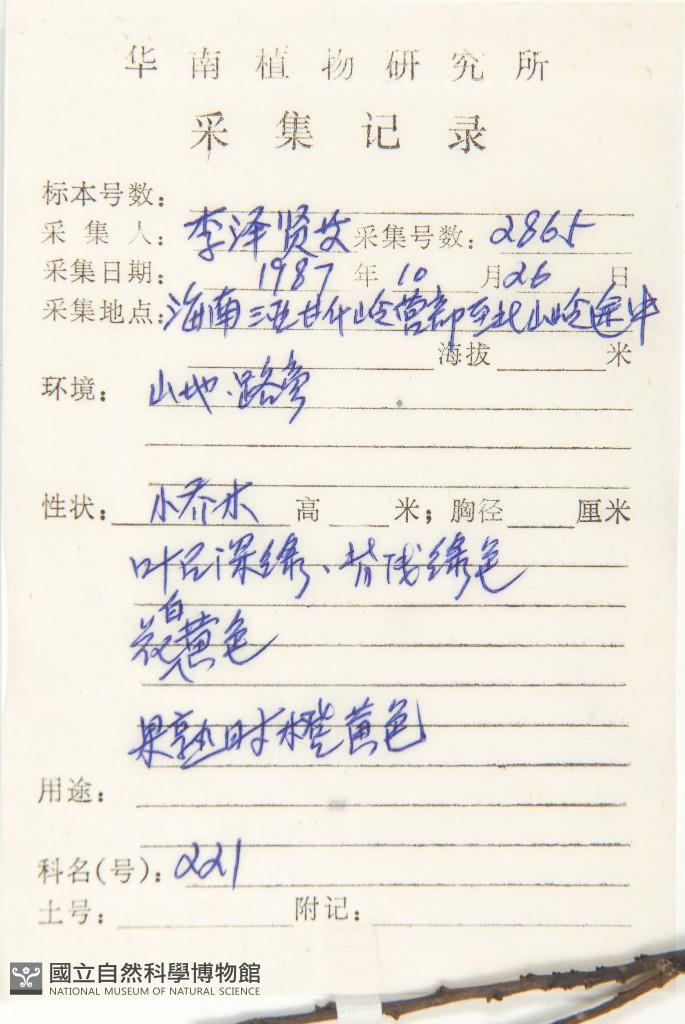 华南植物研究所
采集记录
标本号数：
采集人：李泽贤等 采集号数：2865
采集日期：1987年10月26日
采集地点：海南三亚甘什岭营部至北山岭途中
海拔 米
环境：山地、路旁
性状：小乔木 高 米；胸径 厘米
叶面深绿、背浅绿色
花白黄色
果熟时橙黄色
用途：
科名(号)：221
土号： 附记：
國立自然科學博物館
NATIONAL MUSEUM OF NATURAL SCIENCE